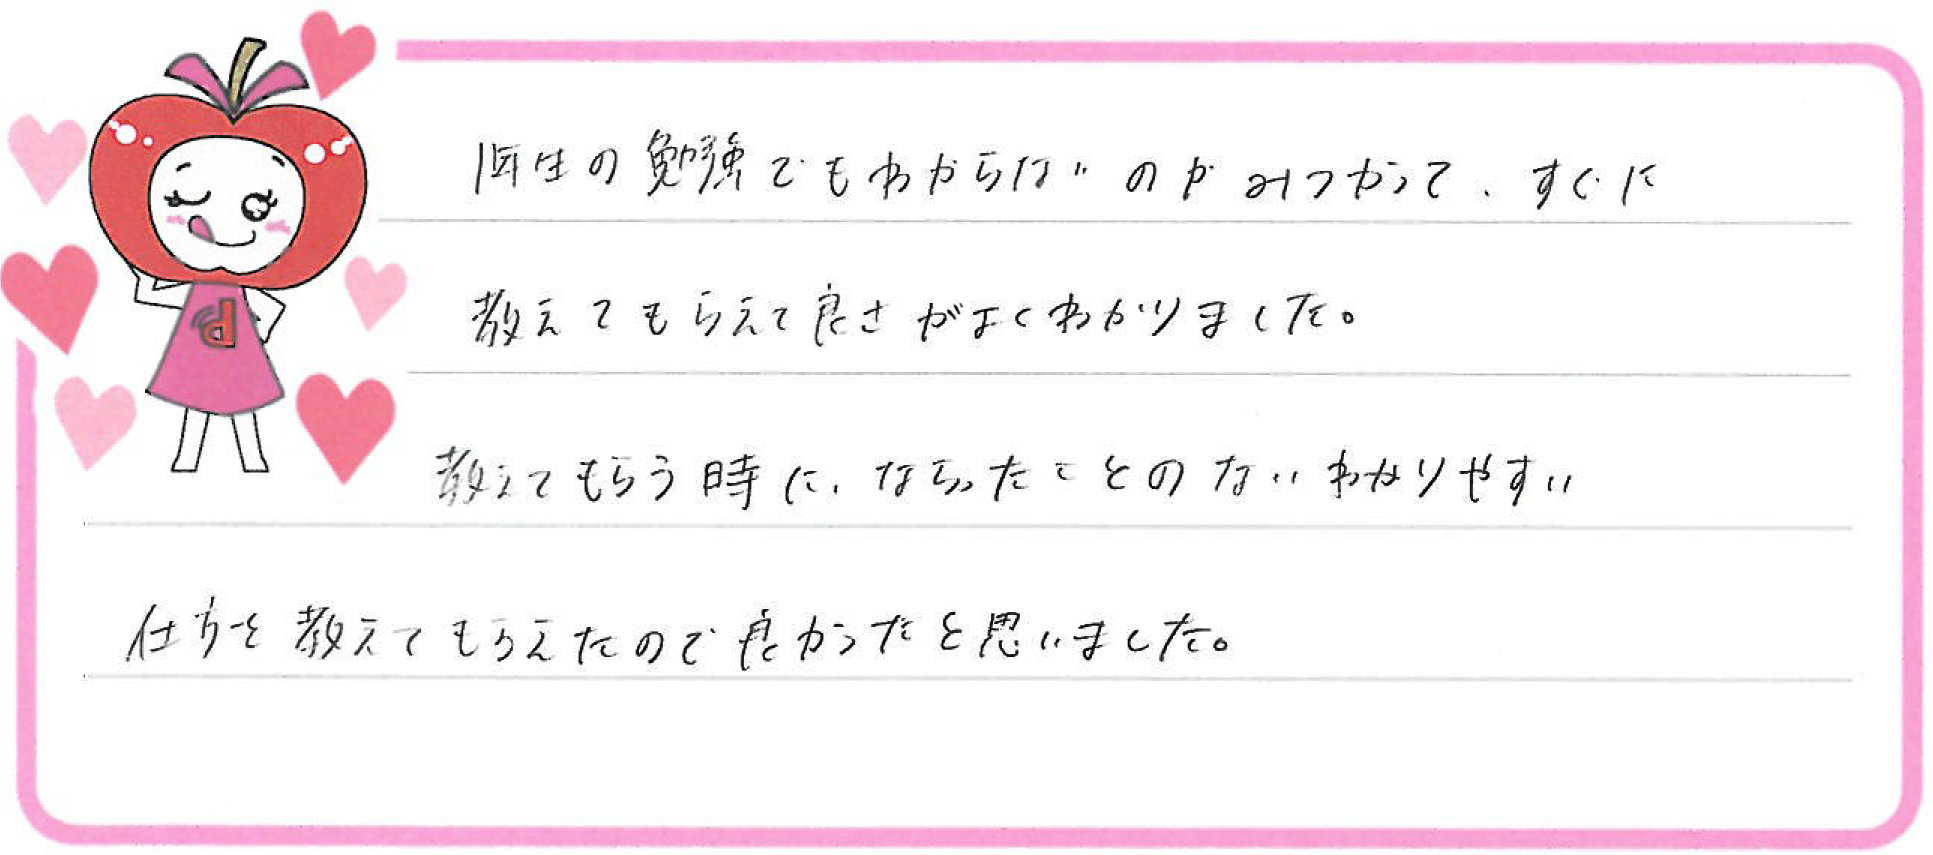 1年生の勉強でもわからないのがみつかって、すぐに
教えてもらえて良さがよくわかりました。
教えてもらう時に、ならったことのないわかりやすい
仕方を教えてもらえたので良かったと思いました。